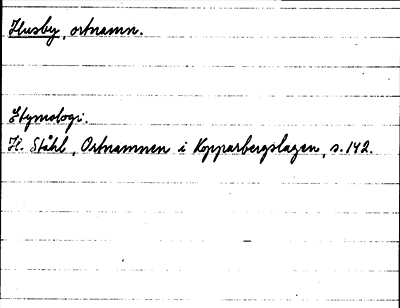 Husby, ortnamn.
Etymologi.
H. Ståhl, Ortnamnen i Kopparbergslagen, s. 142.